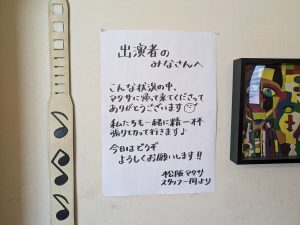 出演者の
みなさんへ
こんな状況の中、
マクサに帰って来てくださって
ありがとうございます
私たちも一緒に精一杯
張り切って行きます♪
今日はどうぞ
よろしくお願いします!!
松阪マクサ
スタッフ一同より